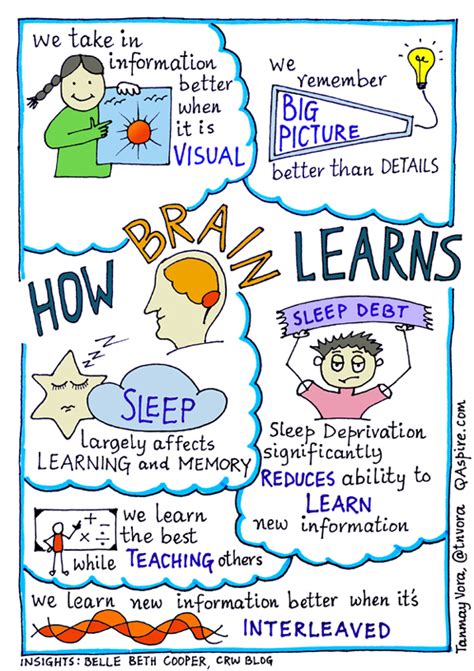 we take in
information
better
when
it is
VISUAL
we
remember
BIG
PICTURE
better than DETAILS
HOW BRAIN LEARNS
SLEEP
largely affects
LEARNING and MEMORY
SLEEP DEBT
Sleep Deprivation
significantly
REDUCES ability to
LEARN
new information
we learn
the best
while TEACHING others
we learn new information better when it's
INTERLEAVED
INSIGHTS: BELLE BETH COOPER, CRW BLOG
Tanmay Vora, @tnvora QAspire.com